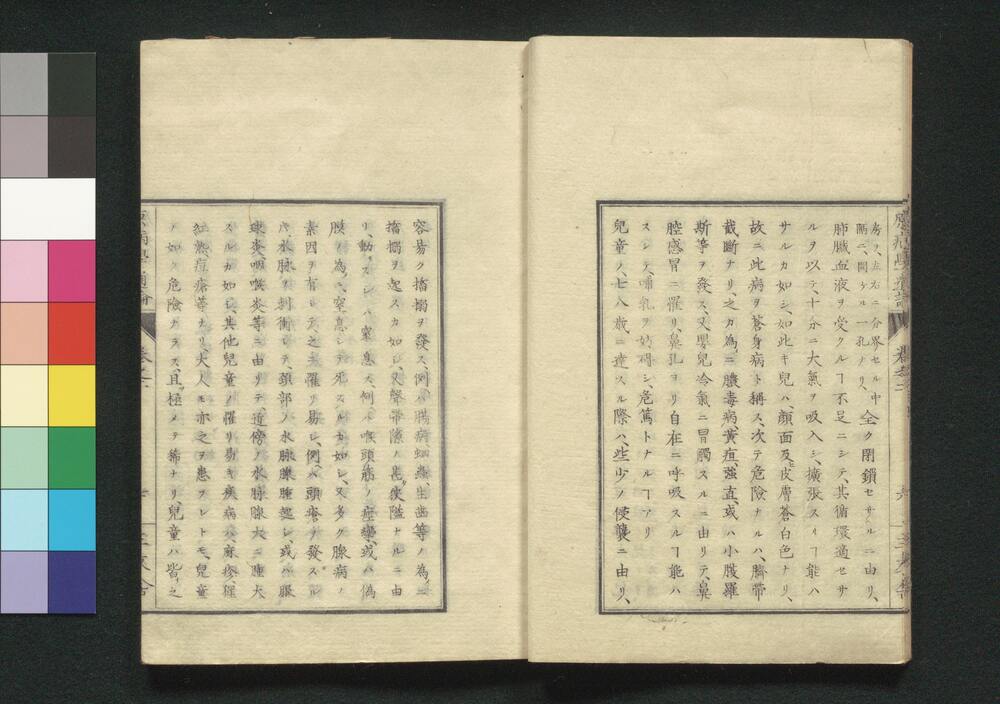 房ヲ、左右ニ分界セル中
隔ニ、開ケル一孔ノリ、全ク閉鎖セサルニ由リ、
肺臓血液ヲ受クルヿ不足ニシテ、其循環適セサ
ルヲ以テ、十分ニ大氣ヲ吸入シ、擴張スルヿ能ハ
サルカ如シ、如此キ兒ハ、顔面及ヒ皮膚蒼白色ナリ、
故ニ此病ヲ蒼身病ト稱ス、次テ危險ナルハ、臍帶
截斷ナリ、之カ為ニ膿毒病、黄疸、強直、或ハ小肢羅
斯等ヲ發ス、又嬰兒冷氣ニ冒觸スルニ由リテ、鼻
腔感冒ニ罹リ、鼻孔ヨリ自在ニ呼吸スルヿ能ハ
スシテ、哺乳ヲ妨碍シ、危篤トナルヿアリ
兒童ノ、七八歳ニ達スル際ハ、些少ノ侵襲ニ由リ、
容易ク搐搦ヲ發ス、例ハ腸病蚘蟲、生齒等ノ為ニ
搐搦ヲ起スカ如シ、又聲帶隙ノ甚狹隘ナルニ由
リ、動スレハ窒息ス、例ハ喉頭筋ノ痙攣、或ハ偽
膜ノ為ニ、窒息シテ死スルカ如シ、又多ク腺病ノ
素因ヲ有シテ、之ニ罹リ易シ、例ハ頭瘡ヲ發スル
片、水脉ヲ刺衝シテ、頸部ノ水脉腺腫起シ、或ハ眼
球炎、咽喉炎等ニ由リテ、近傍ノ水脉腺大ニ腫大
スルカ如シ、其他兒童ノ罹リ易キ疾病ハ、麻疹、猩
紅熱、痘瘡等ナリ、大人モ亦之ヲ患フレトモ、兒童
ノ如ク危險ナラス、且極メテ稀ナリ、兒童ハ皆之